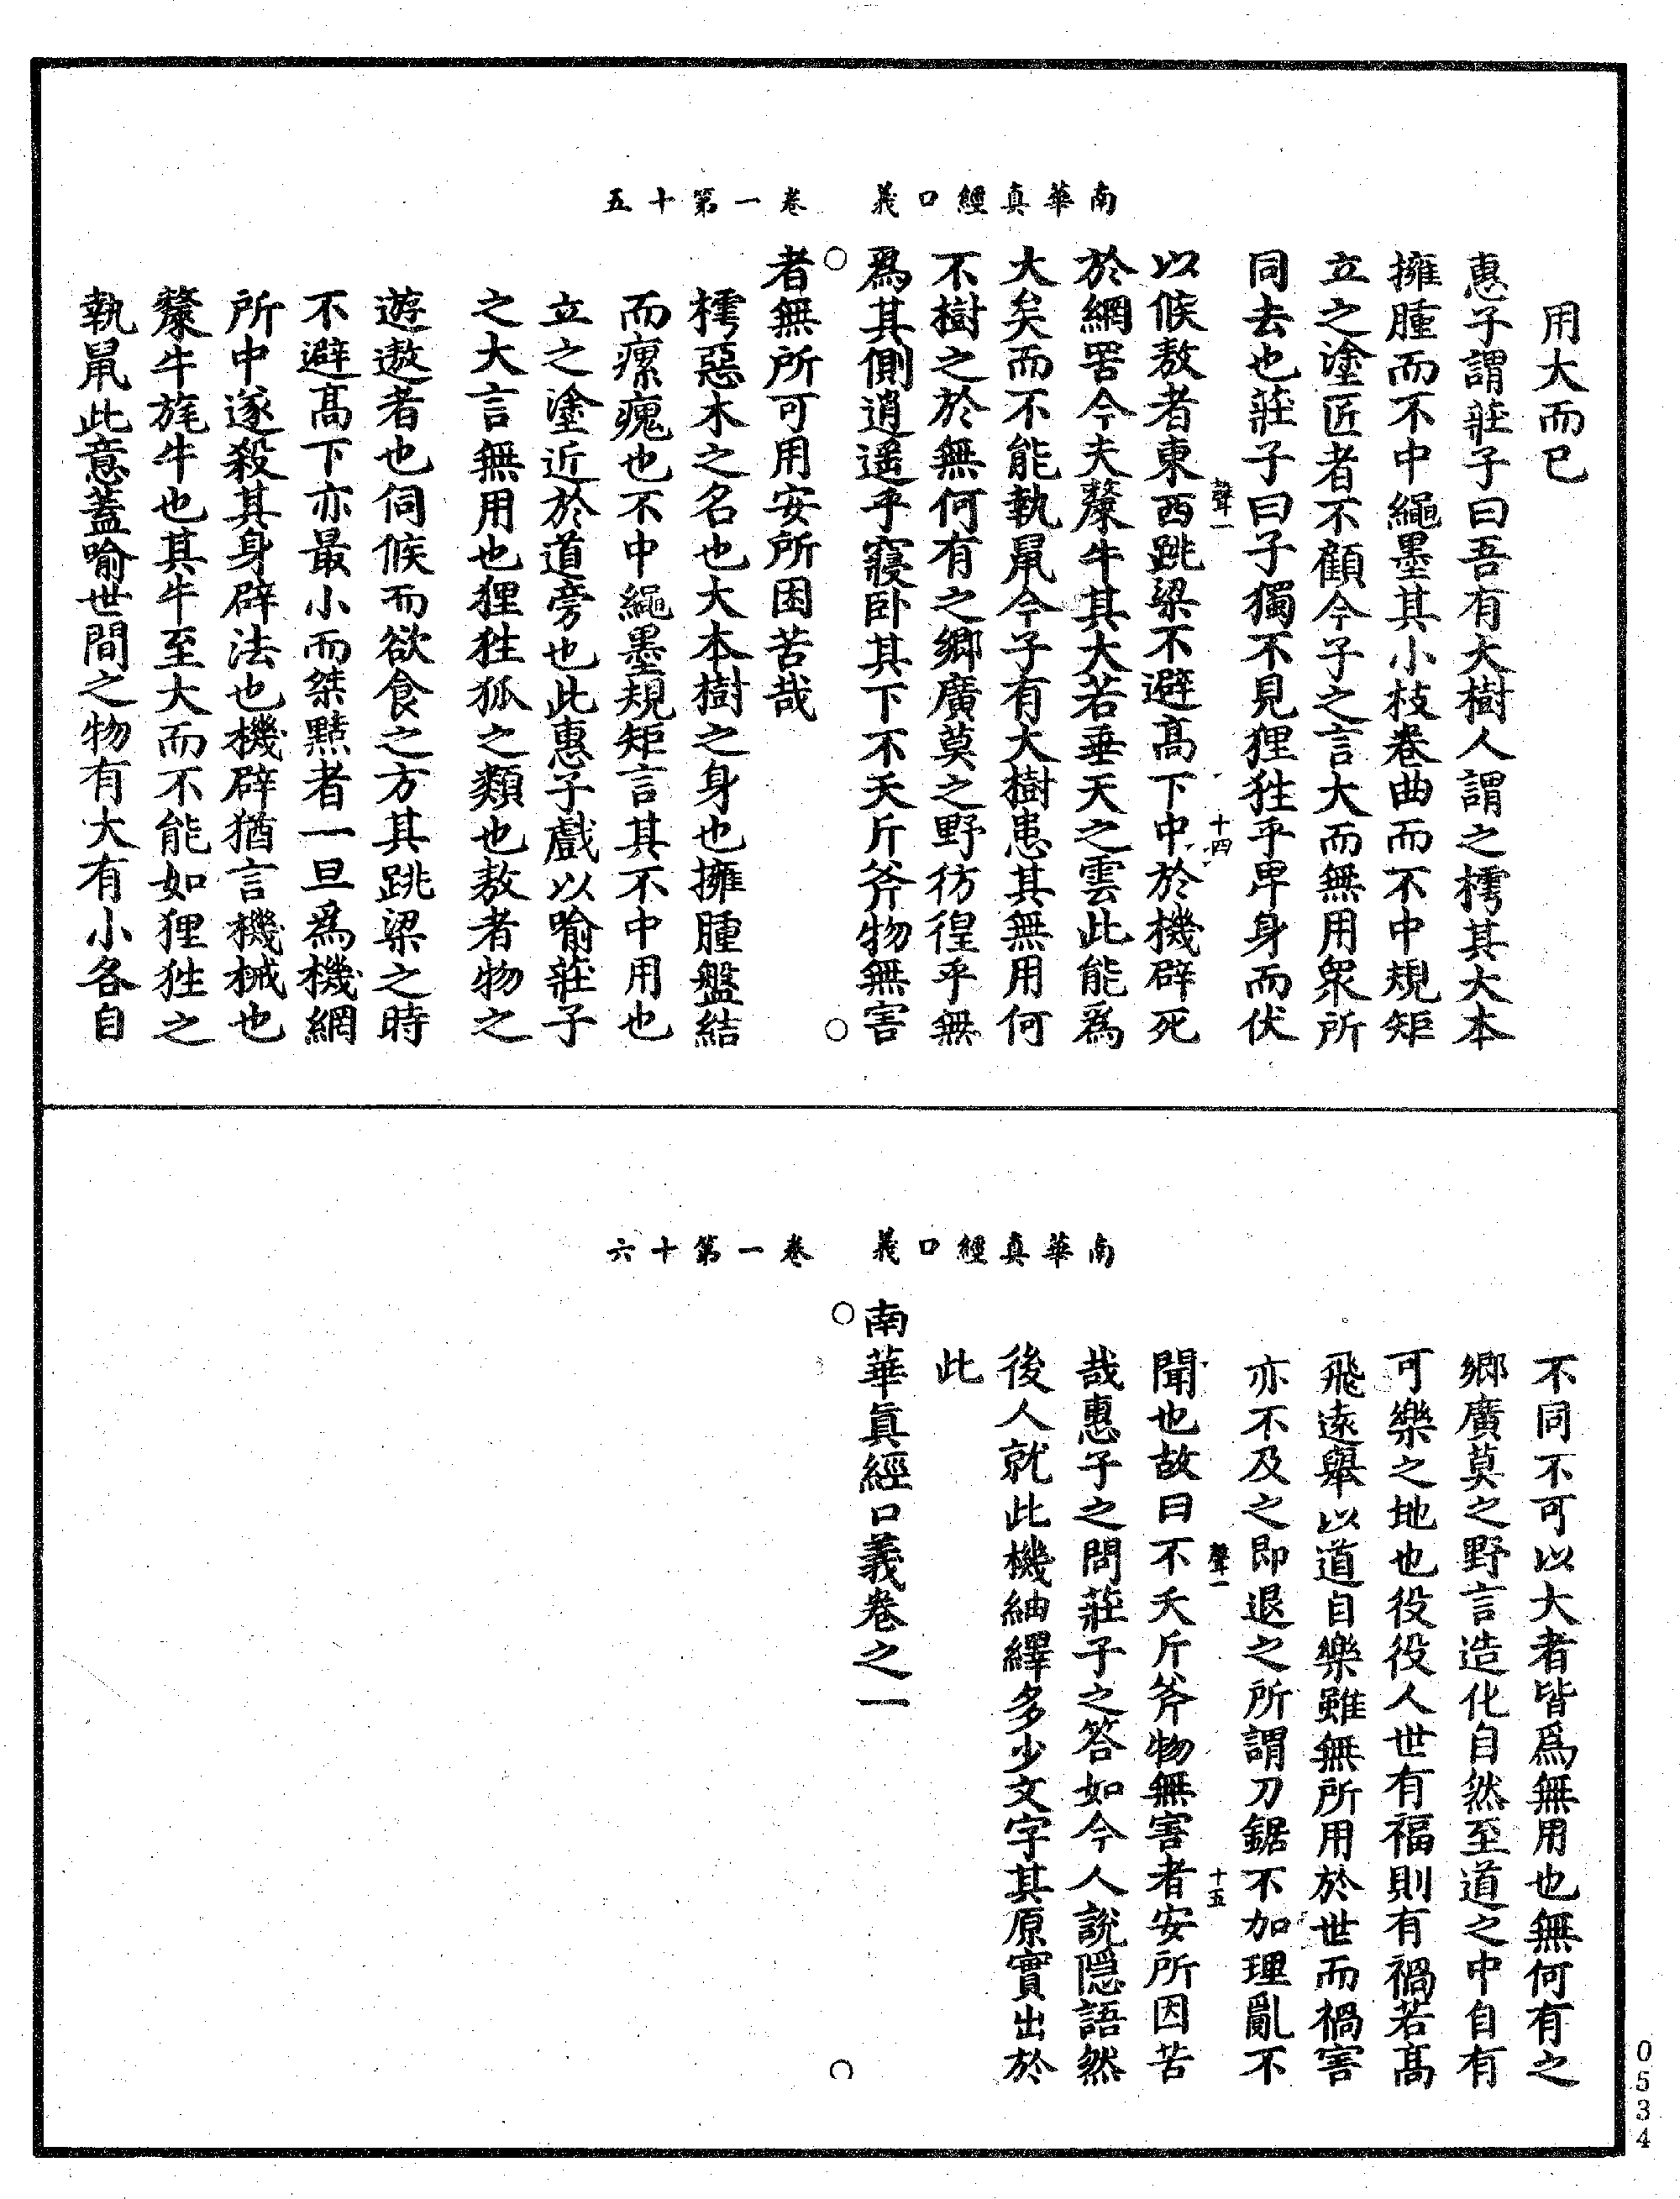 南華真經口義　卷一第十五
用大而已
惠子謂莊子曰吾有大樹人謂之樗其大本
擁腫而不中繩墨其小枝卷曲而不中規矩
立之塗匠者不顧今子之言大而無用衆所
同去也莊子曰子獨不見狸狌乎卑身而伏
聲一　十四
以候敖者東西跳梁不避髙下中於機辟死
於網罟今夫斄牛其大若垂天之雲此能爲
大矣而不能執鼠今子有大樹患其無用何
不樹之於無何有之鄉廣莫之野彷徨乎無
爲其側逍遥乎寢卧其下不夭斤斧物無害
者無所可用安所困苦哉
樗惡木之名也大本樹之身也擁腫盤結
而瘰瘣也不中繩墨規矩言其不中用也
立之塗近於道旁也此惠子戲以喻莊子
之大言無用也狸狌狐之類也敖者物之
遊遨者也伺候而欲食之方其跳梁之時
不避髙下亦最小而桀黠者一旦爲機網
所中遂殺其身辟法也機辟猶言機械也
斄牛旄牛也其牛至大而不能如狸狌之
執鼠此意蓋喻世間之物有大有小各自
南華真經口義　卷一第十六
不同不可以大者皆爲無用也無何有之
鄉廣莫之野言造化自然至道之中自有
可樂之地也役役人世有福則有禍若髙
飛遠舉以道自樂雖無所用於世而禍害
亦不及之即退之所謂刀鋸不加理亂不
聲一　十五
聞也故曰不夭斤斧物無害者安所困苦
哉惠子之問莊子之答如今人說隱語然
後人就此機紬繹多少文字其原實出於
此
南華眞經口義卷之一
0534